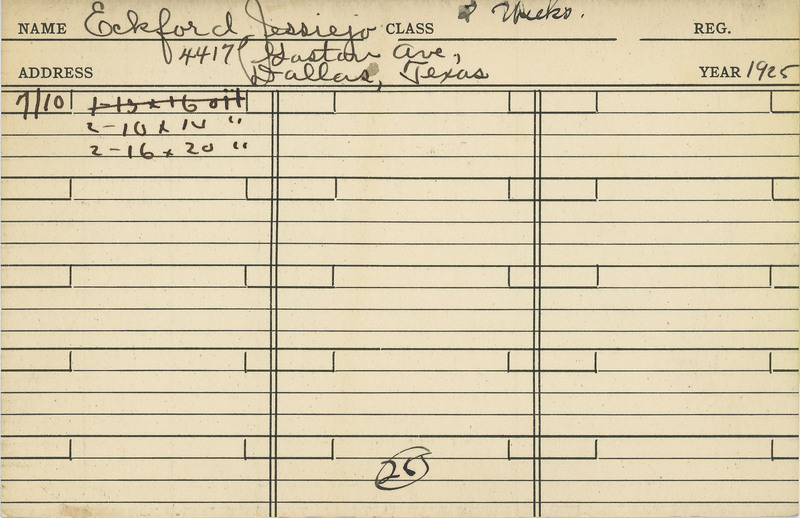 NAME Eckford Jessiejo CLASS 2 Weeks. REG.
4417 Gaston Ave,
ADDRESS Dallas, Texas YEAR 1925
7/10 1-13 x 16 oil
2-10 x 14 "
2-16 x 20 "
25